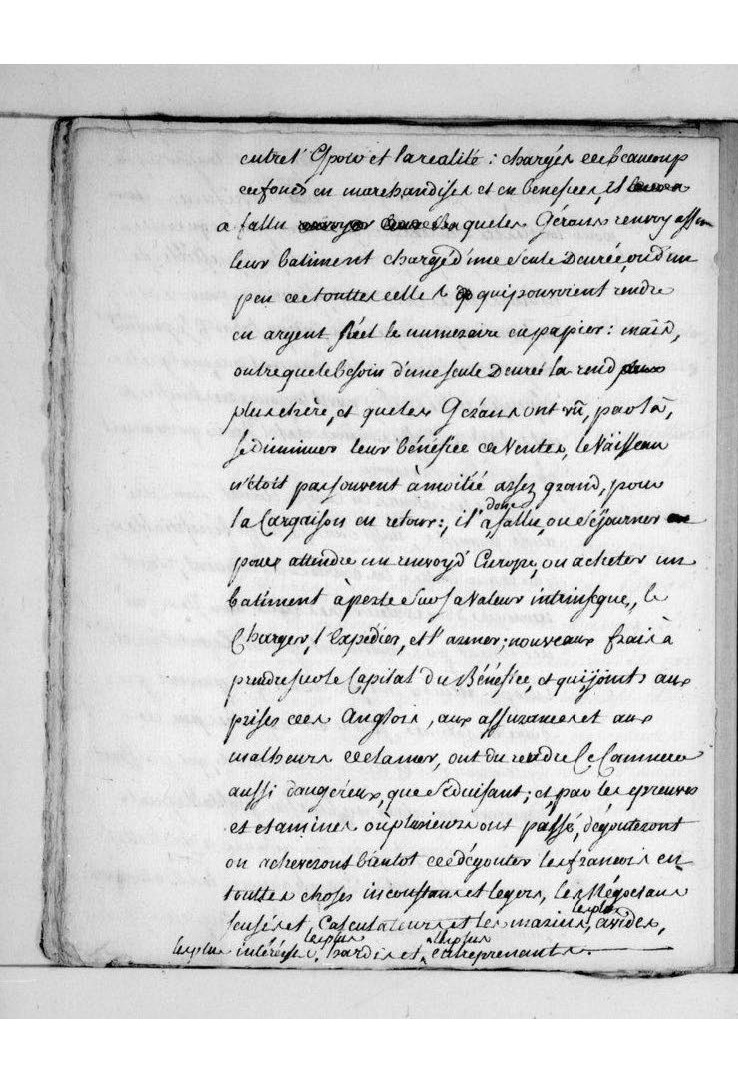 entre l'Espoir et la realité : chargés de beaucoup
en fonds en marchandises et en benefices, il
a fallu que les Gérans renvoyassen
leur batiment chargé d'une seule Denrée, ou d'un
peu de touttes celles qui pouvoient rendre
en argent réel le numeraire en papier : mais,
outre que le besoin d'une seule Denrée la rend
plus chère, et que les Gérans ont vû, par là,
se diminuer leur bénéfice de Ventes, le Vaisseau
n'étoit pas souvent à moitié assez grand, pour
la Cargaison en retour :, il a donc fallu, ou séjourner
pour attendre un renvoy d'Europe, ou acheter un
batiment à perte sur sa valeur intrinseque, le
Charger, l'Expédier, et l'armer ; nouveaux frais à
prendre sur le Capital du Bénéfice, et qui joints aux
prises des Anglois, aux assurances et aux
malheurs de la mer, ont du rendre le Commerce
aussi dangereux, que séduisant ; et, par les epreuves
et etamines où plusieurs ont passé, dégouteront
ou acheveront bientot de dégouter les francois en
touttes choses inconstans et legers, les Négocians
sensés et, Calculateurs et les marins, les plus avides,
les plus intéressés, les plus hardis et, les plus entreprenants.